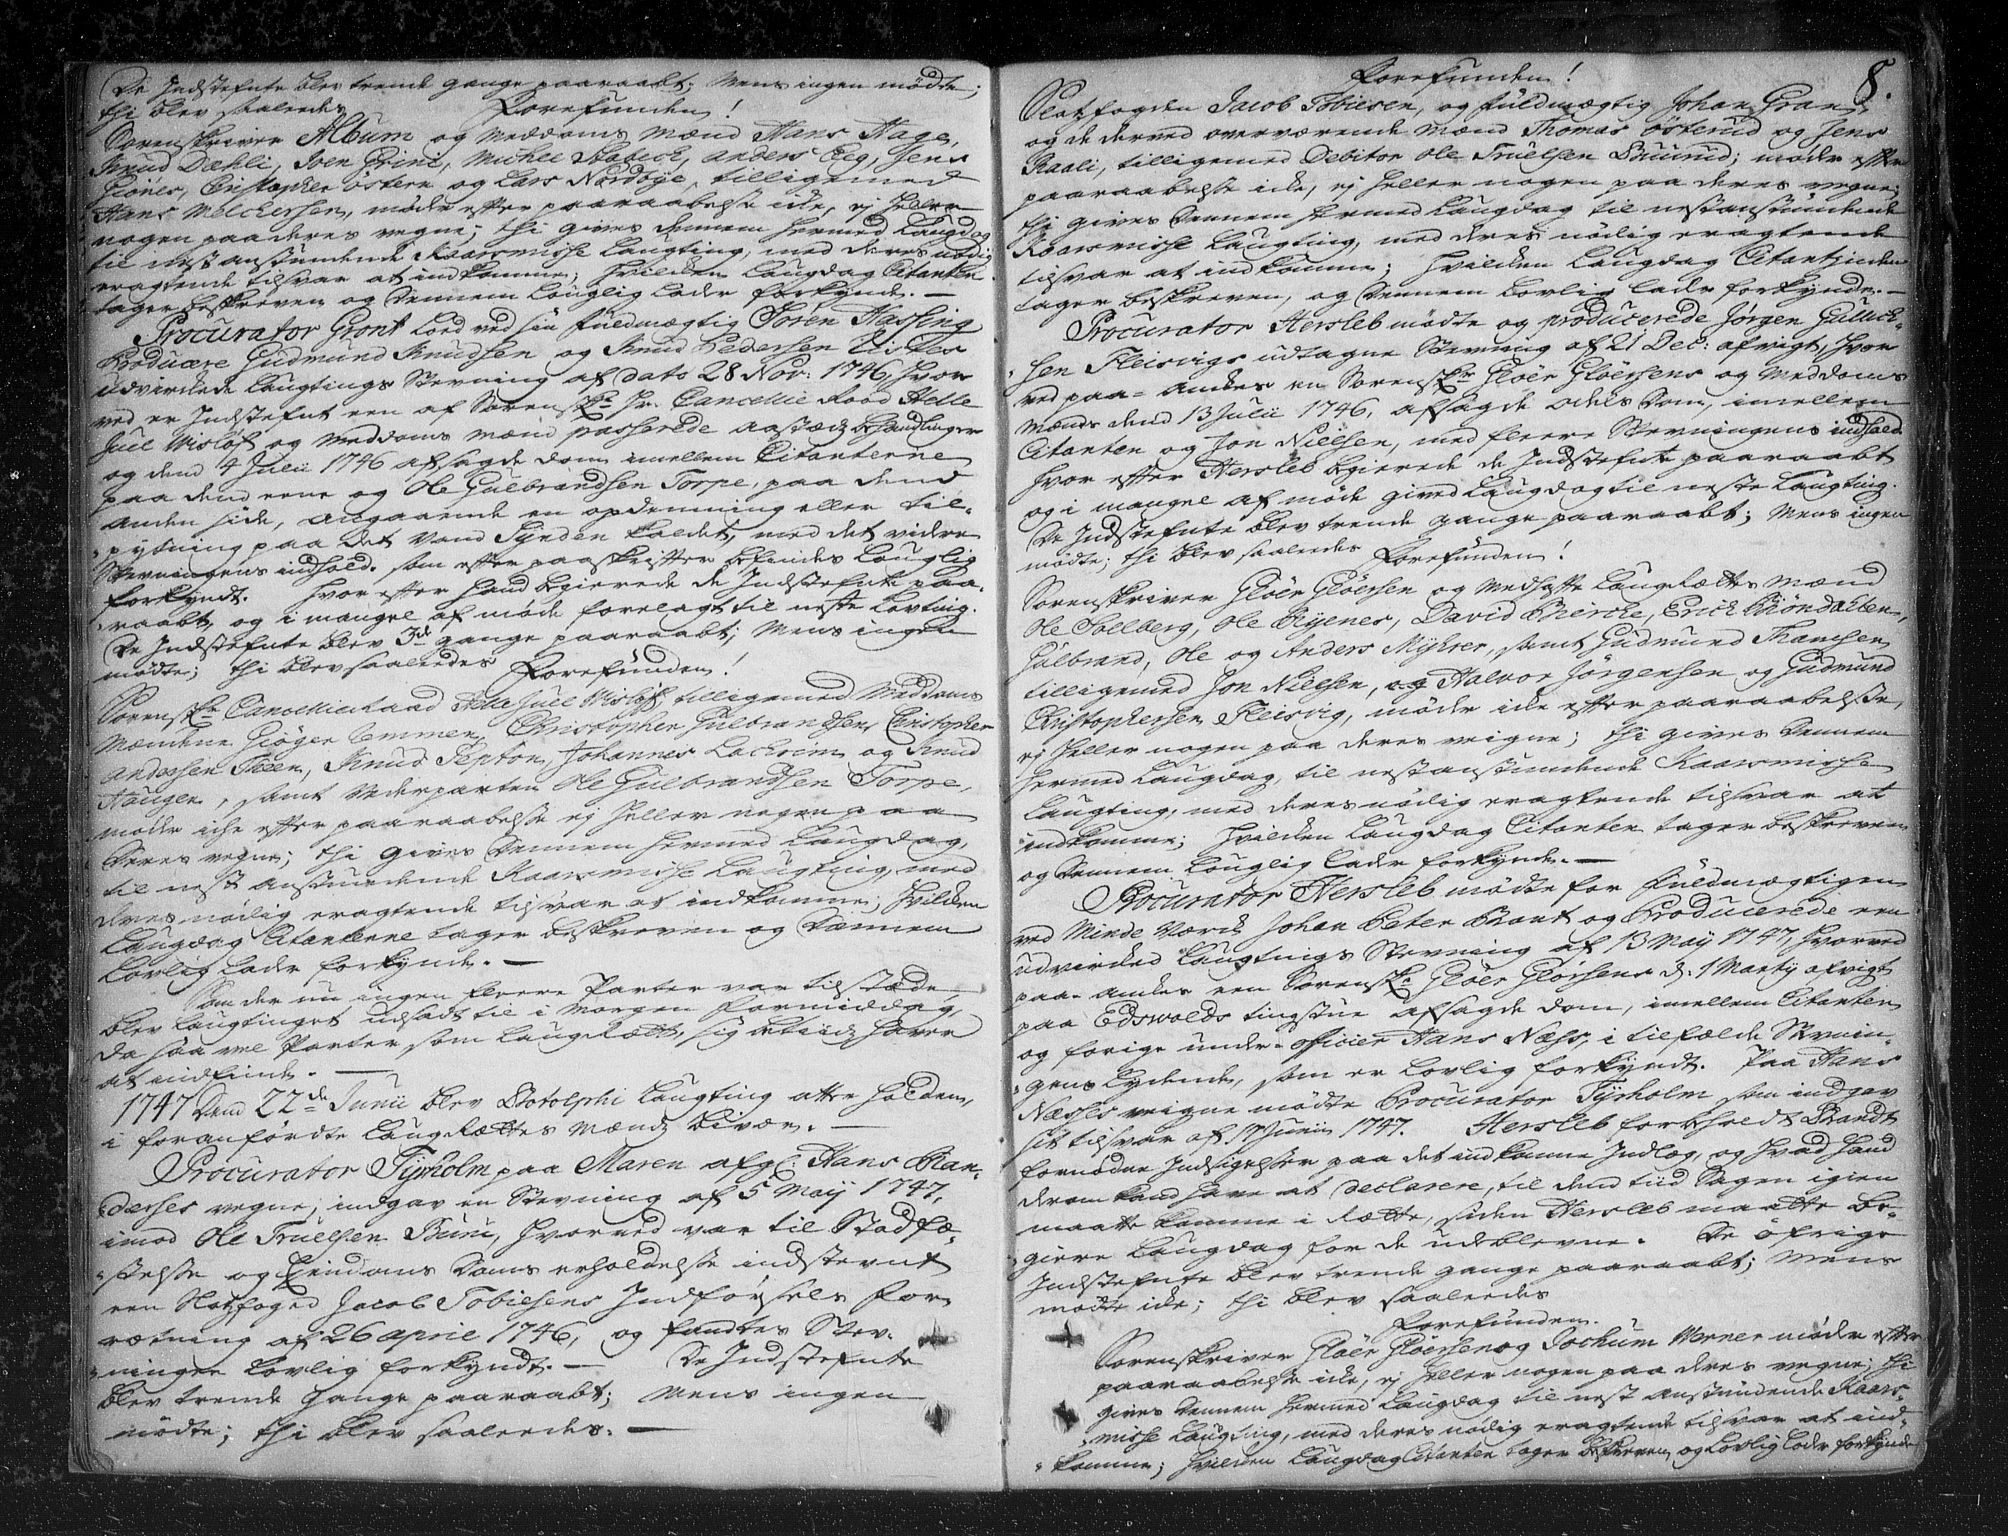 De Indstefnte blev trende gange paaraabt; Mens ingen mødte;
thi blev saaledes Forefunden!
Sorenskriver Album og Meddoms Mænd Hans Hage,
Knud Dæhli, Iver Grini, Michel Stabeck, Anders Eeg, Jens
Gioner, Christopher Østern og Lars Nordbye, tilligemed
Hans Melchersen, møder efter paaraabelse icke, ej heller
nogen paa deres vegne; thi gives dennem hermed Laugdag
til nest anstundende Kaarsmisse Laugting, med deres nødig
eragtende tilsvar at indkomme; hvilken Laugdag Citanten
tager beskreven og dennem Louglig lader forkynde. —
Procurator Gront loed ved sin fuldmægtig Søren Hassing
Producere Gudmund Knudsen og Knud Pedersen
udvirkede Laugtings Stevning af dato 28 Nov: 1746, hvor
ved er Indstefnt een af Sorenskr. Hr. Cancellie Raad Helle
Juel Wisløf og Meddoms Mænd passerede aasteds behandlinger
og dend 4 Julii 1746 afsagde dom imellem Citanterne
paa dend eene og Ole Gulbrandsen Torpe, paa dend
anden side, angaaende en opdemning eller til-
pytning paa det Vand Synden kaldet, med det videre
Stevningens indhold. som efter paaskrifter befindes Louglig
forkyndt. Hvor efter hand begierede de Indstefnte paa-
raabt, og i mangel af møde forelagt til neste Lovting.
De Indstefnte blev 3de gange paaraabt; Mens ingen
mødte; thi blev saaledes Forefunden!
Sorenskr. Cancellieraad Helle Juel Wisløf, tilligemed Meddoms
Mændene Giøger Emmen, Christopher Gulbrandsen, Christopher
Andersen Theen, Knud Septon, Johannes Lachrim og Knud
Haugen, samt Vederparten Ole Gulbrandsen Torpe,
møder iche efter paaraabelse ej heller nogen paa
deres vegne; thi gives dennem hermed Laugdag,
til nest anstundende Kaarsmisse Laugting, med
deres nødig eragtende tilsvar at indkomme; hvilken
Laugdag Citanterne tager beskreven og dennem
Lovlig lader forkynde. —
Som der nu ingen fleere Parter var tilstæde,
blev Laugtinget udsadt til i Morgen formiddag,
da saa vel Parter, som Laugrætt, sig betiids haver
at indfinde. —
1747 Dend 22de Junii blev Botolphi Laugting atter holden,
i foranførdte Laugrættes Mænds bivær. —
Procurator Tyrholm paa Maren afg: Hans Bran-
dærses vegne, indgav en Stevning af 5 Maij 1747,
imod Ole Truelsen Buru, hvorved var til Stadfæ-
stelse og Eiendoms Doms erholdelse indstevnt
een Slotsfoged Jacob Tobiesens Indførsels for-
rætning af 26 April 1746, og fandtes Stev-
ningen Lovlig forkyndt. — De Indstefnte
blev trende gange paaraabt; Mens ingen
mødte; thi blev saaledes. —
8.
Forefunden!
Slotsfogden Jacob Tobiesen, og fuldmægtig Johan Gran,
og de derved overværende Mænd Thomas Østerud og Jens
Kaali, tilligemed Debitor Ole Truelsen Buurud; møder efter
paaraabelse icke, ej heller nogen paa deres vegne;
thi gives dennem hermed Laugdag til nestanstundende
Kaarsmisse Laugting, med deres nødig eragtende
tilsvar at indkomme; hvilken Laugdag Citantinden
tager beskreven, og dennem Lovlig lader forkynde. —
Procurator Hersleb mødte og producerede Jørgen Gullich-
sen Fleisvigs udtagne Stevning af 21 Dec: afvigt, hvor
ved paa-ankes en Sorenskr. Gløer Gløersens og Meddoms
Mænds dend 13 Julii 1746, afsagde Odels Dom, imellem
Citanten og Jon Nielsen, med fleere Stevningens indhold
hvor efter Hersleb begierede de Indstefnte paaraabt
og i mangel af møde gived Laugdag til neste Laugting.
De Indstefnte blev trende gange paaraabt; Mens ingen
mødte; thi blev saaledes Forefunden!
Sorenskriver Gløer Gløersen og Medhafte Laugrættes Mænd
Ole Solberg, Ole Ryenes, David Bircke, Erich Brøndahlen,
Gulbrand, Ole og Anders Myhrer, samt Gudmund Thanesen
tilligemed Jon Nielsen, og Halvor Jørgensen og Gudmund
Christophersen Fleisvig, møder icke efter paaraabelse,
ej heller nogen paa deres veigne; thi gives dennem
hermed Laugdag, til nestanstundende Kaarsmisse
Laugting, med deres nødig eragtende tilsvar at
indkomme; hvilken Laugdag Citanten tager beskreven
og dennem Louglig lader forkynde. —
Procurator Hersleb mødte for Fuldmægtigen
ved Minde Værck Johan Peter Brant og Producerede een
udvirked Laugtings Stevning af 13 Maij 1747, hvorved
paa-ankes een Sorenskr. Gløer Gløersens d. 1 Martij afvigt
paa Edswolds tingstue afsagde dom, imellem Citanten
og forige under-officier Hans Næss, i tilfælde Stevnin-
gens Lydende, som er Lovlig forkyndt. Paa Hans
Næsses veigne mødte Procurator Tyrholm som indgav
sit tilsvar af 17 Junii 1747. Hersleb forbeholdt Brandt
fornødne Indsigelser paa det indkomne Indlæg, og hvad hand
derom kand have at declarere, til dend tiid Sagen igien
maatte komme i Rætte, siden Hersleb maatte be-
giere Laugdag for de udeblevne. De øfrige
Indstefnte blev trende gange paaraabt; Mens
mødte icke; thi blev saaledes
Forefunden.
Sorenskriver Gløer Gløersen og Jochum Werner møder efter
paaraabelse icke, ej heller nogen paa deres vegne; thi
gives dennem hermed Laugdag til nest anstundende Kaars-
misse Laugting, med deres nødig eragtende tilsvar at ind-
komme; hvilken Laugdag Citanten tager beskreven, og Lovlig lader forkynde